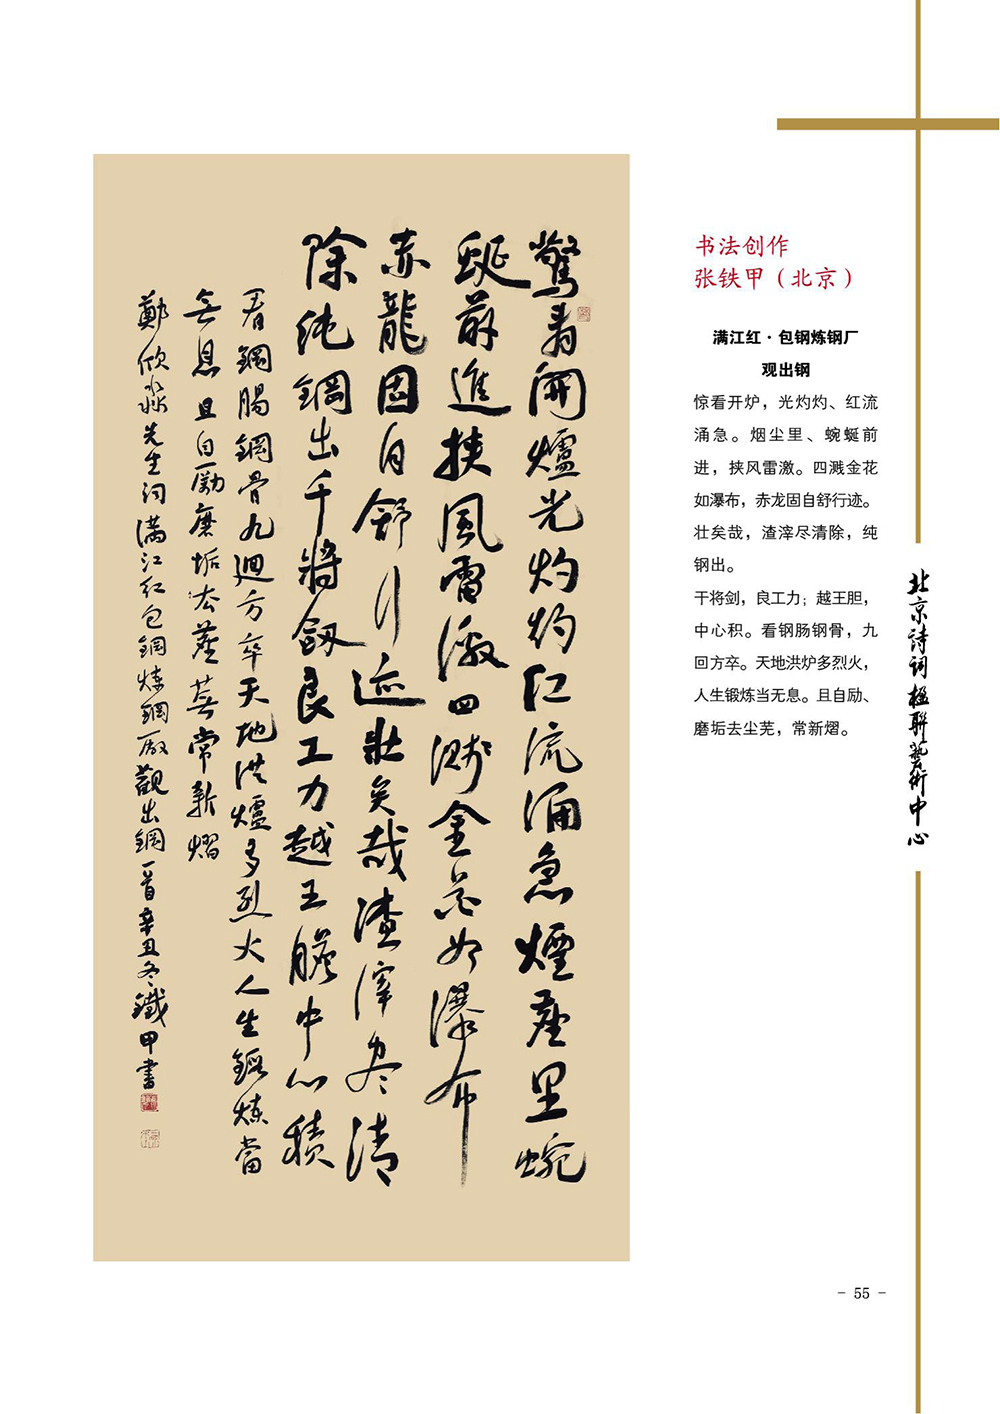 驚看開爐光灼灼红流涌急煙塵里蜿
蜒前進挟風雷激四溅金花如瀑布
赤龍固自舒行迹壯矣哉渣滓尽清
除纯鋼出干將劔良工力越王膽中心積
看鋼腸鋼骨九迴方卒天地洪爐多烈火人生鍛炼當
无息且自勵磨垢去塵芜常新熠
鄭欣淼先生词满江红包鋼炼鋼厰觀出鋼一首辛丑冬鐵甲書
书法创作
张铁甲（北京）
满江红·包钢炼钢厂
观出钢
惊看开炉，光灼灼、红流
涌急。烟尘里、蜿蜒前
进，挟风雷激。四溅金花
如瀑布，赤龙固自舒行迹。
壮矣哉，渣滓尽清除，纯
钢出。
干将剑，良工力；越王胆，
中心积。看钢肠钢骨，九
回方卒。天地洪炉多烈火，
人生锻炼当无息。且自励、
磨垢去尘芜，常新熠。
北京诗词楹联艺術中心
- 55 -